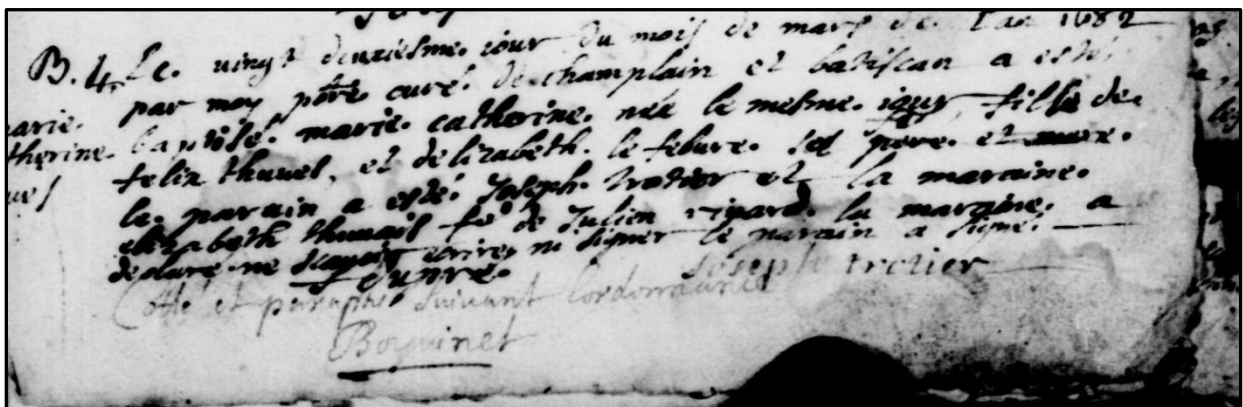 B. 4. Le. vingt deuxiesme. iour du mois de mars de. L'an 1682
par moy pbre. curé. de champlain et batiscan a esté
arie. baptisé. marie. catherine. née le mesme. iour fille de.
therine. felix thunel, et delizabeth. le febure. ses pere. et mere.
uel le. parain a esté. Joseph. trotier et la maraine.
elizabeth thunail fe de Julien rivard. la maraine. a
declaré. ne scavoir écrire, ni signer le parain a signé.
Joseph trotier
Cotté et paraphé suivant l'ordonnance
Boyvinet